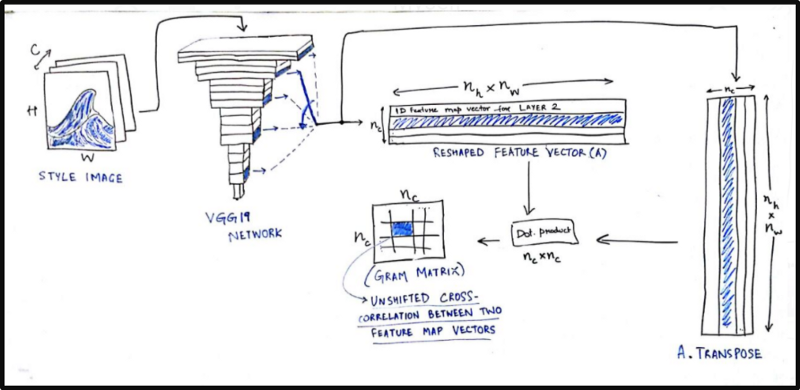 C
H
W
STYLE IMAGE
VGG19
NETWORK
n_h × n_w
1D feature map vector for LAYER 2
n_c
RESHAPED FEATURE VECTOR (A)
n_c
n_h × n_w
A. TRANSPOSE
Dot. product
n_c × n_c
n_c
n_c
(GRAM MATRIX)
UNSHIFTED CROSS-
CORRELATION BETWEEN TWO
FEATURE MAP VECTORS